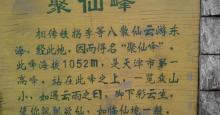 聚仙峰
相传铁拐李等八散仙云游东
海，经此地，因而得名“聚仙峰”。
此峰海拔1052m，是天津市第一
高峰，站在此峰之上，一览众山
小，如遇云雨之日，脚下彩云生，
使你飘飘欲仙，如临仙境一般。